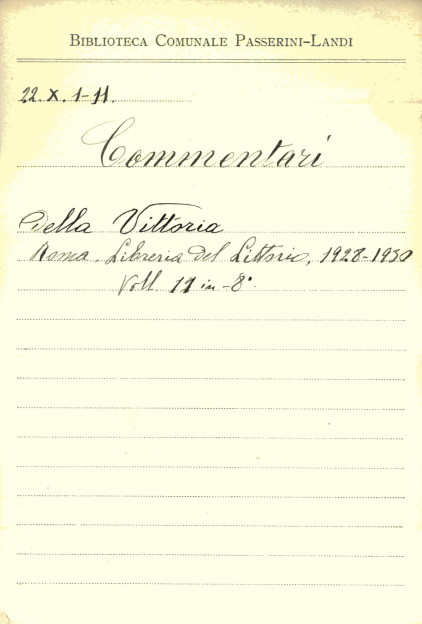 BIBLIOTECA COMUNALE PASSERINI-LANDI
22. X. 1-11.
Commentari
Della Vittoria
Roma, Libreria del Littorio, 1928-1930
Voll. 11 in-8°.